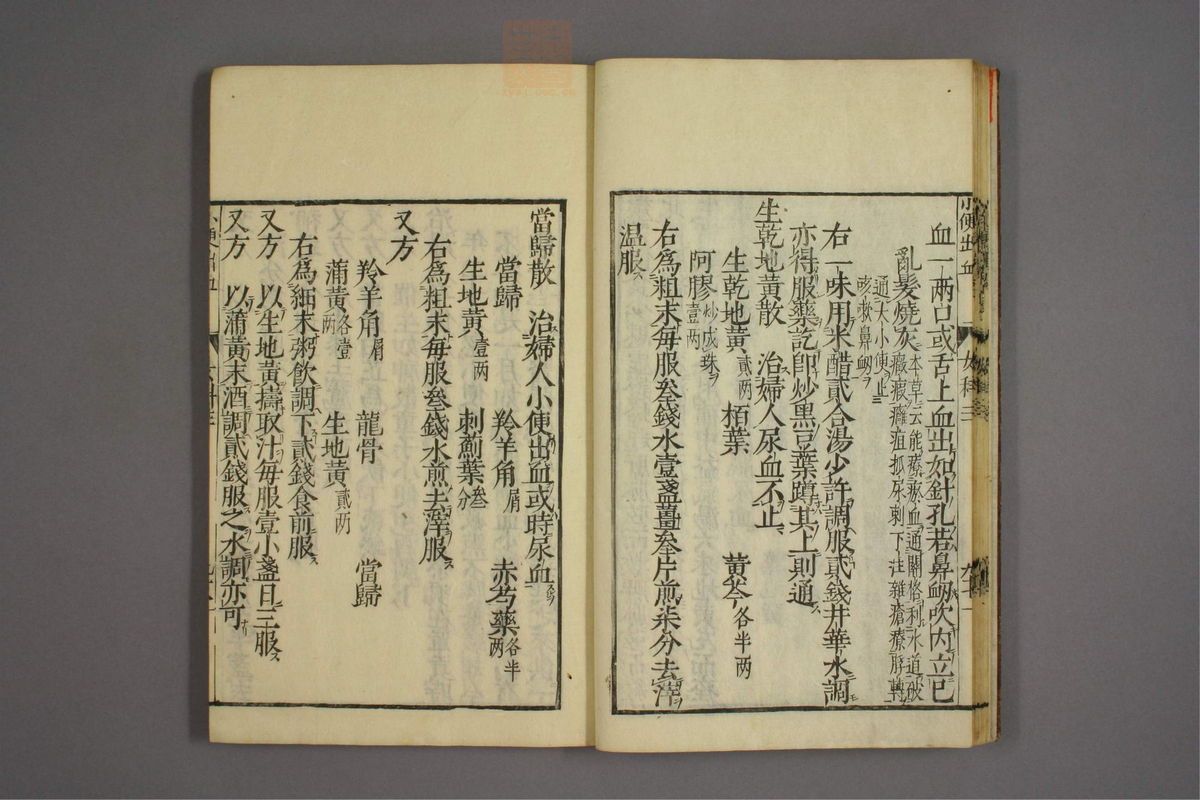 小便出血
女科三
血一兩口或舌上血出如針孔若鼻衂吹內立已
亂髮燒灰
本草云能療瘀血通關格利水道破
癥瘕癰疽抓尿刺下注雜瘡療脬轉
通大小便止
咳嗽鼻衂
右一味用米醋貳合湯少許調服貳錢井華水調
亦得服藥訖卽炒黑豆葉蹲其上則通
生乾地黃散 治婦人尿血不止
生乾地黃貳兩 栢葉 黃芩各半兩
阿膠炒成珠壹兩
右爲粗末每服叁錢水壹盞薑叁片煎柒分去滓
温服
當歸散 治婦人小便出血或時尿血
當歸 羚羊角屑 赤芍藥各半兩
生地黃壹兩 刺薊葉叁分
右爲粗末每服叁錢水煎去滓服
又方
羚羊角屑 龍骨 當歸
蒲黃各壹兩 生地黃貳兩
右爲細末粥飲調下貳錢食前服
又方 以生地黃擣取汁每服壹小盞日三服
又方 以蒲黃末酒調貳錢服之水調亦可